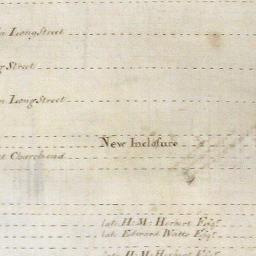 n Long Street
g Street
n Long Street
New Inclosure
t Churchend
late H: M: Herbert Esqr.
late Edward Watts Esqr.
late H: M: Herbert Esqr.